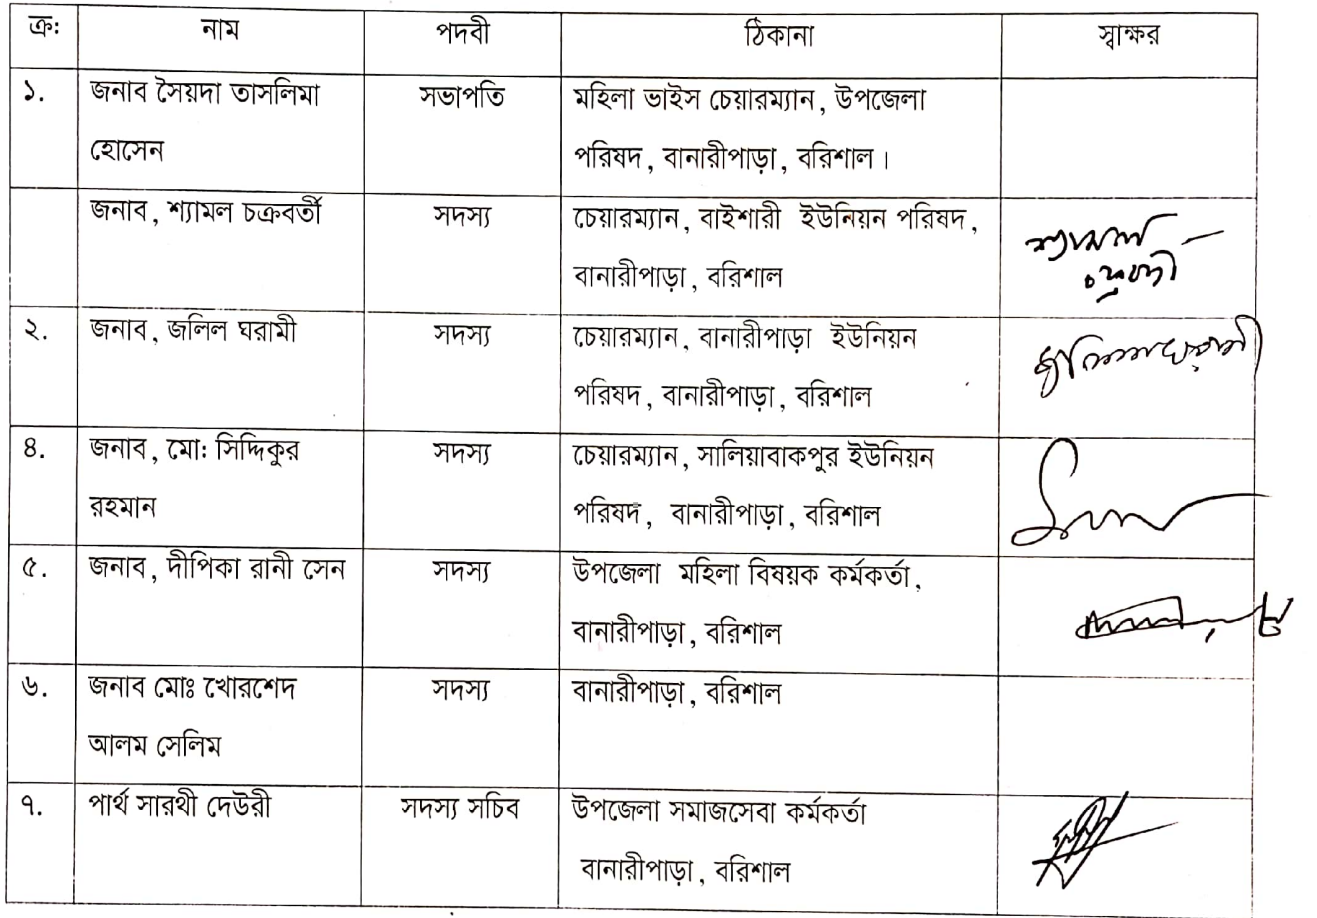 ক্র: নাম পদবী ঠিকানা স্বাক্ষর
১. জনাব সৈয়দা তাসলিমা সভাপতি মহিলা ভাইস চেয়ারম্যান, উপজেলা
হোসেন পরিষদ, বানারীপাড়া, বরিশাল।
জনাব, শ্যামল চক্রবর্তী সদস্য চেয়ারম্যান, বাইশারী ইউনিয়ন পরিষদ,
শ্যামল
বানারীপাড়া, বরিশাল
২. জনাব, জলিল ঘরামী সদস্য চেয়ারম্যান, বানারীপাড়া ইউনিয়ন
পরিষদ, বানারীপাড়া, বরিশাল
৪. জনাব, মো: সিদ্দিকুর সদস্য চেয়ারম্যান, সালিয়াবাকপুর ইউনিয়ন
রহমান পরিষদ, বানারীপাড়া, বরিশাল
৫. জনাব, দীপিকা রানী সেন সদস্য উপজেলা মহিলা বিষয়ক কর্মকর্তা,
বানারীপাড়া, বরিশাল
৬. জনাব মোঃ খোরশেদ সদস্য বানারীপাড়া, বরিশাল
আলম সেলিম
৭. পার্থ সারথী দেউরী সদস্য সচিব উপজেলা সমাজসেবা কর্মকর্তা
বানারীপাড়া, বরিশাল